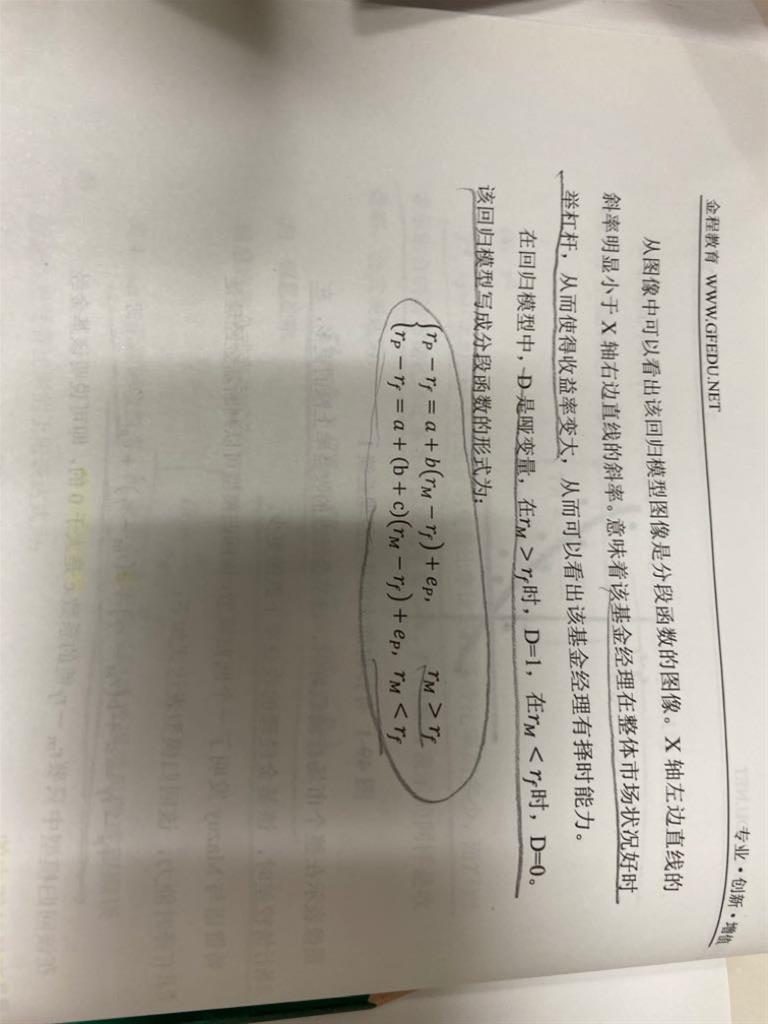 金程教育 WWW.GFEDU.NET
专业·创新·增值
从图像中可以看出该回归模型图像是分段函数的图像。X 轴左边直线的
斜率明显小于 X 轴右边直线的斜率。意味着该基金经理在整体市场状况好时
举杠杆，从而使得收益率变大，从而可以看出该基金经理有择时能力。
在回归模型中，D 是哑变量，在r_M > r_f时，D=1，在r_M < r_f时，D=0。
该回归模型写成分段函数的形式为：
r_P − r_f = a + b(r_M − r_f) + e_P, r_M > r_f
r_P − r_f = a + (b + c)(r_M − r_f) + e_P, r_M < r_f